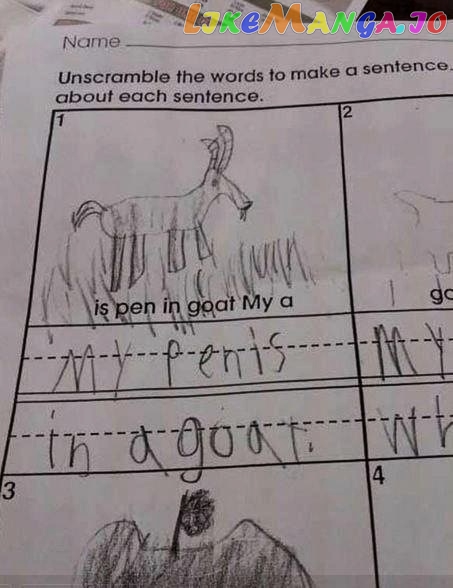 LikeManga.io
Name
Unscramble the words to make a sentence.
about each sentence.
1
2
is pen in goat My a
My Penis
My
in a goat.
3
4